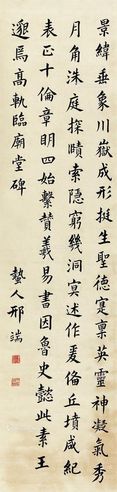 景緯垂象川嶽成形挺生聖德寔稟英靈神凝氣秀
月角珠庭探賾索隱窮幾洞冥述作爰俻丘墳咸紀
表正十倫章明四始繫贊羲易書因魯史懿此素王
邈焉高軌臨廟堂碑 蟄人邢端